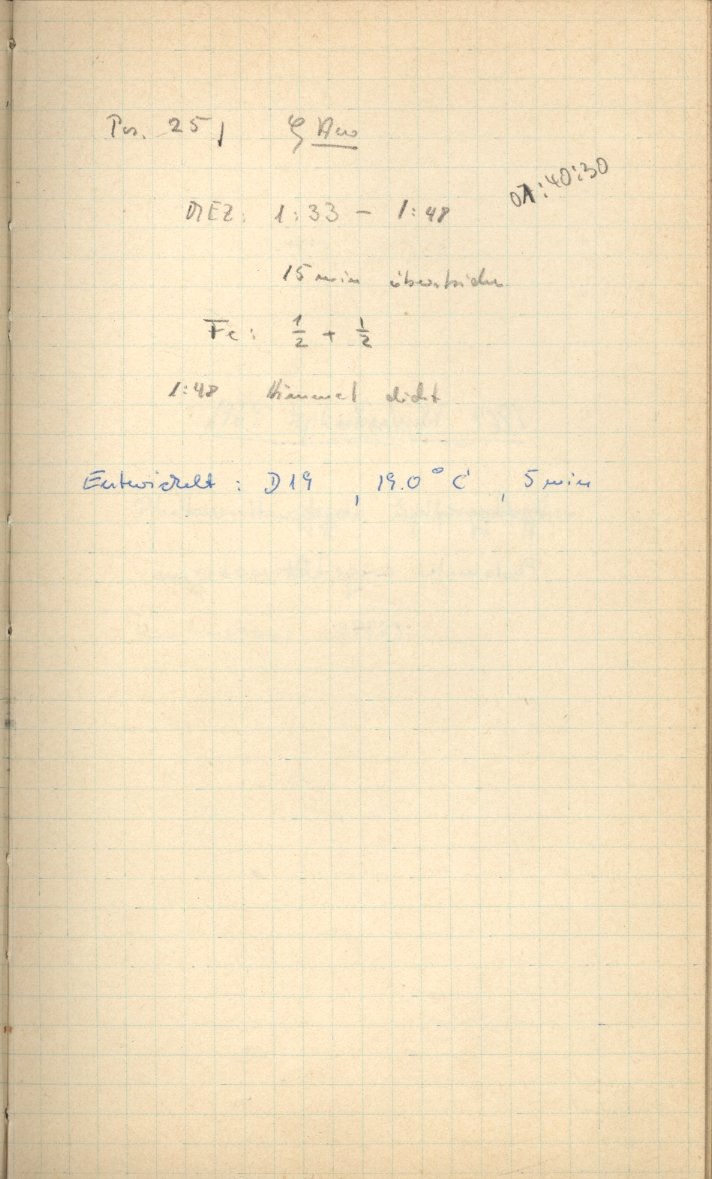 Pos. 25 | ζ Aur
MEZ: 1:33 – 1:48 01:40:30
15 min überstrichen
Fe: 1/2 + 1/2
1:48 Himmel dicht
Entwickelt : D19 , 19.0° C , 5 min